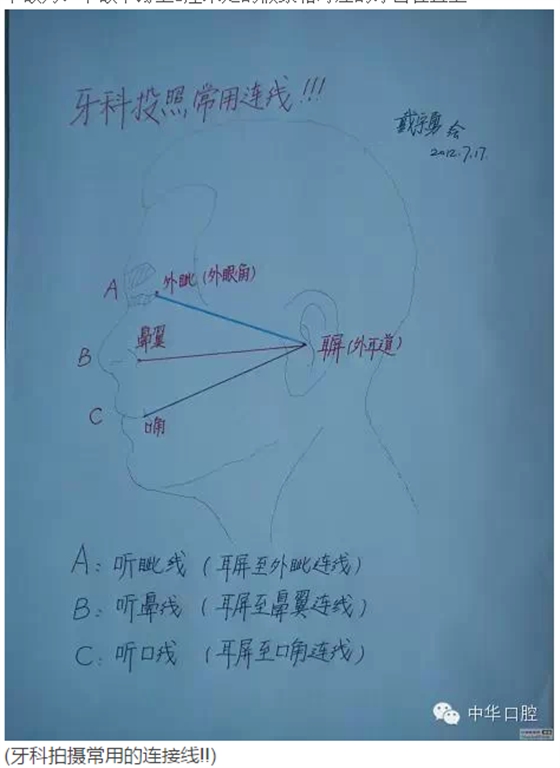 牙科投照常用连线!!!
戴宗勇 绘
2012.7.17.
A 外眦 (外眼角)
B 鼻翼
耳屏 (外耳道)
C 口角
A: 听眦线 (耳屏至外眦连线)
B: 听鼻线 (耳屏至鼻翼连线)
C: 听口线 (耳屏至口角连线)
中华口腔
(牙科拍摄常用的连接线!!)